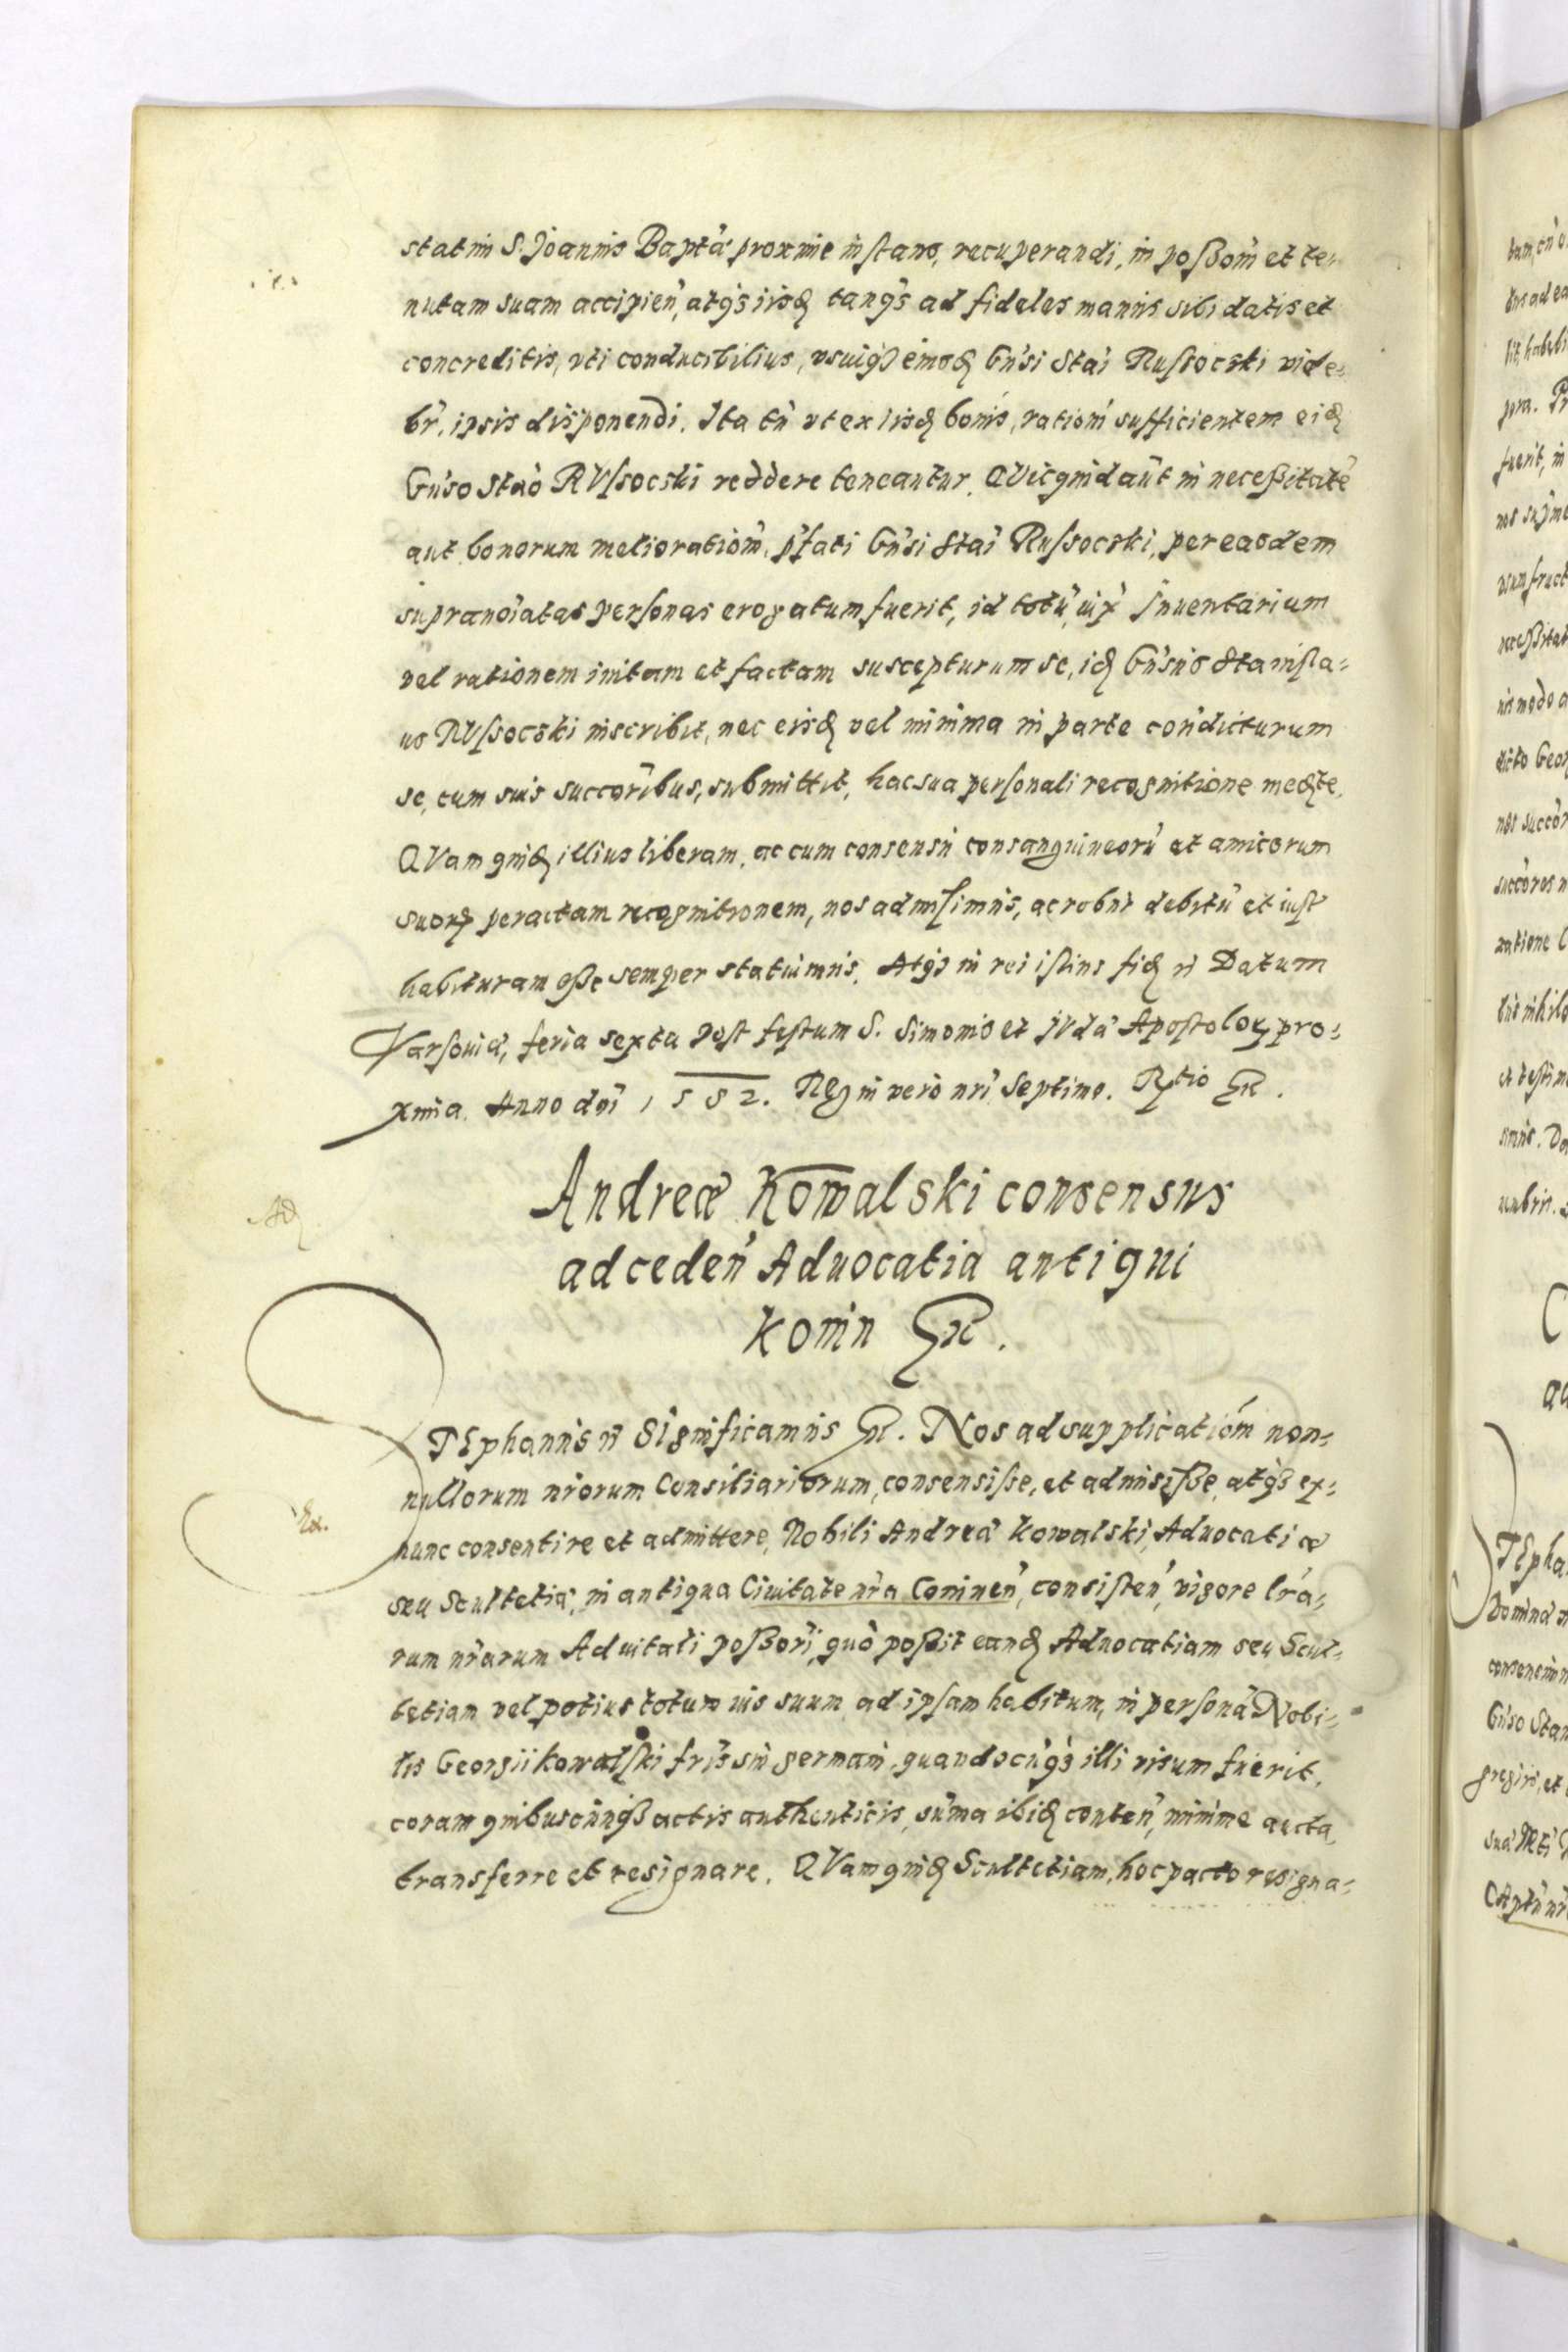 statim S. Joannis Baptã proxime instans, recuperandi, in possom̃ et te-
nutam suam accipień, atq́₃ iisd̨ tanq́₃ ad fideles manus sibi datis et
concreditis, vti conducibilius, vsuiq́₃ eiusd̨ Gn̓si Stai Russocski vide-
br̃, ipsis disponendi. Ita tñ vt ex iisd̨ bonis, rationi sufficientem eid̨
Gn̓so Stao RVssocski reddere teneantur. QVicquid aũt in necessitatẽ
aut bonorum meliorationẽ, p̃fati Gn̓si Stai Russocski, per easdem
supranoiatas personas erogatum fuerit, id totũ, iux̃ Inuentarium
vel rationem initam et factam suscepturum se, id̨ Gn̓sus Stanisla-
us RVssocski inscribit, nec eisd̨ vel minima in parte condicturum
se, cum suis succorĩbus, submittit, hac sua personali recognitione med̨te.
QVam quid̨ illius liberam, ac cum consensu consanguineorũ et amicorum
suorꝝ peractam recognitionem, nos admisimus, ac robur debitũ et iust̃
habituram esse semper statuimus. Atq₃ in rei istius fid̨ ñ Datum
Varsouiã, feria sexta post festum S. Simonis et JVdã Apostoloꝝ pro-
xima. Anno dñi 1582. Regni vero nri Septimo. Rtio Gr̃.
Andreæ Kowalski consensus
ad cedeñ Aduocatia antiqui
Konin Gr̃.
STEphanus ñ Significamus Gr̃. Nos ad supplicatiom̃ non-
nullorum nrorum Consiliariorum, consensisse, et admisisse, atq₃ ex-
nunc consentire et admittere, Nobili Andreã Kowalski, Aduocatiæ
seu Scultetiã, in antiqua Ciuitate nra Coninen̓, consisten̓, vigore lrã-
rum nrarum Aduitali possori, quò possit eand̨ Aduocatiam seu Scul-
tetiam vel potius totum ius suum ad ipsam habitum, in personã Nobi-
lis Georgii Kowalski frĩs sui germani, quandocũq₃ illi visum fuerit,
coram quibuscunq₃ actis authenticis, sum̃a ibid̨ conten̓, minime aucta,
transferre et resignare. QVam quid̨ Scultetiam, hoc pacto resigna-
Ad
Rx.